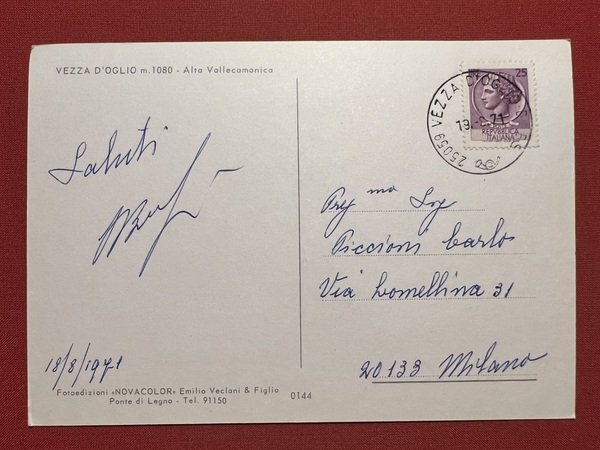 VEZZA D'OGLIO m. 1080 - Alta Vallecamonica
25
REPVBBLICA
ITALIANA
25059 VEZZA D'OGLIO
19.-8.71
Saluti
Preg mo Sig
Piccioni Carlo
Via Lomellina 31
20133 Milano
18/8/1971
Fotoedizioni «NOVACOLOR» Emilio Veclani & Figlio
Ponte di Legno - Tel. 91150
0144